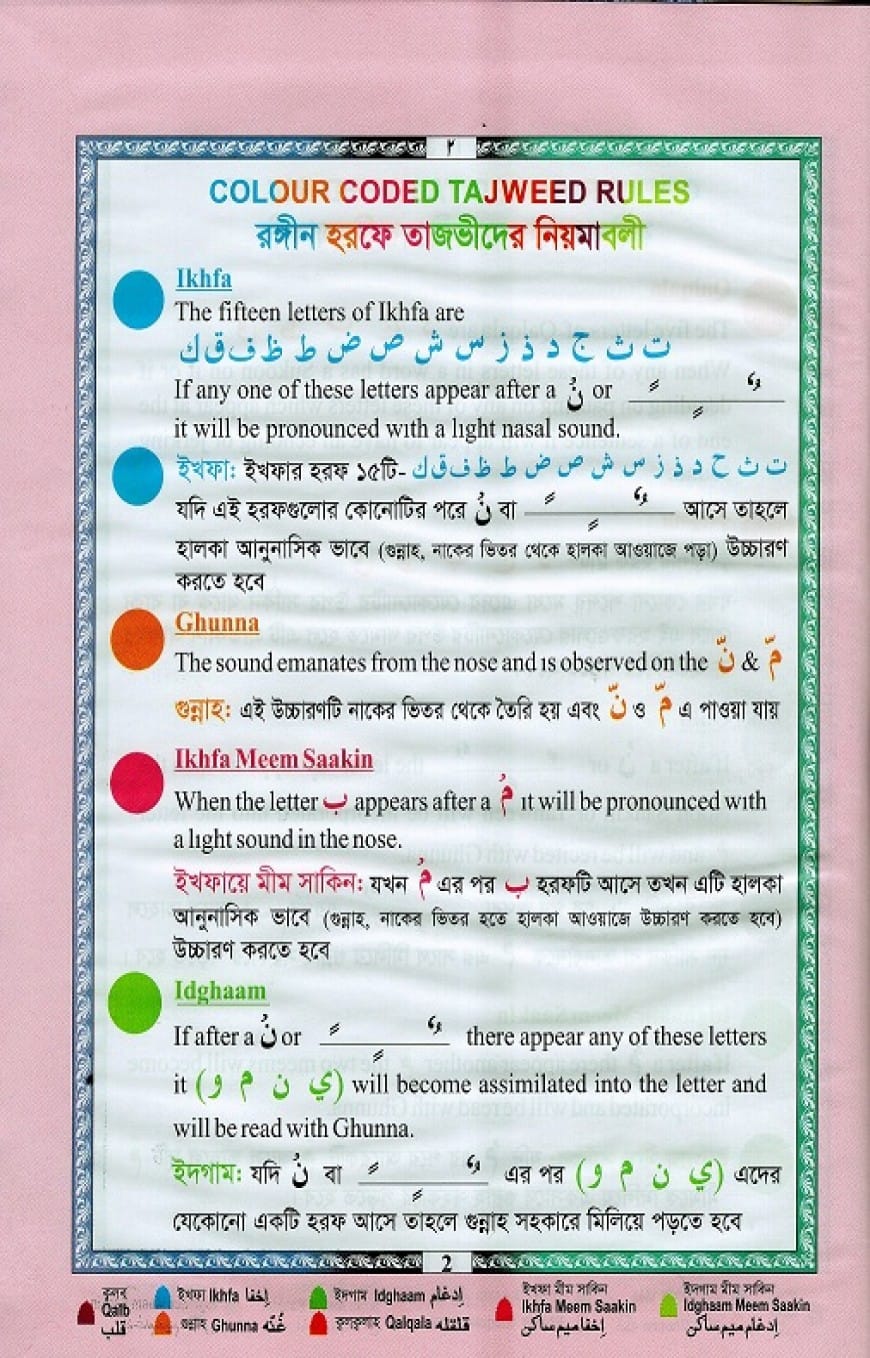 ٢
COLOUR CODED TAJWEED RULES
রঙ্গীন হরফে তাজভীদের নিয়মাবলী
Ikhfa
The fifteen letters of Ikhfa are
ت ث ج د ذ ز س ش ص ض ط ظ ف ق ك
If any one of these letters appear after a نْ or ـً ـٍ ـٌ
it will be pronounced with a light nasal sound.
ইখফা: ইখফার হরফ ১৫টি- ت ث ج د ذ ز س ش ص ض ط ظ ف ق ك
যদি এই হরফগুলোর কোনোটির পরে نْ বা ـً ـٍ ـٌ আসে তাহলে
হালকা আনুনাসিক ভাবে (গুন্নাহ, নাকের ভিতর থেকে হালকা আওয়াজে পড়া) উচ্চারণ
করতে হবে
Ghunna
The sound emanates from the nose and is observed on the نّ & مّ
গুন্নাহ: এই উচ্চারণটি নাকের ভিতর থেকে তৈরি হয় এবং نّ ও مّ এ পাওয়া যায়
Ikhfa Meem Saakin
When the letter ب appears after a مْ it will be pronounced with
a light sound in the nose.
ইখফায়ে মীম সাকিন: যখন مْ এর পর ب হরফটি আসে তখন এটি হালকা
আনুনাসিক ভাবে (গুন্নাহ, নাকের ভিতর হতে হালকা আওয়াজে উচ্চারণ করতে হবে)
উচ্চারণ করতে হবে
Idghaam
If after a نْ or ـً ـٍ ـٌ there appear any of these letters
it (ي ن م و) will become assimilated into the letter and
will be read with Ghunna.
ইদগাম: যদি نْ বা ـً ـٍ ـٌ এর পর (ي ن م و) এদের
যেকোনো একটি হরফ আসে তাহলে গুন্নাহ সহকারে মিলিয়ে পড়তে হবে
2
ক্বলব Qalb قلب
ইখফা Ikhfa إخفا
গুন্নাহ Ghunna غُنّه
ইদগাম Idghaam إدغام
ক্বলক্বলাহ Qalqala قلقله
ইখফা মীম সাকিন Ikhfa Meem Saakin إخفا ميم ساكن
ইদগাম মীম সাকিন Idghaam Meem Saakin إدغام ميم ساكن